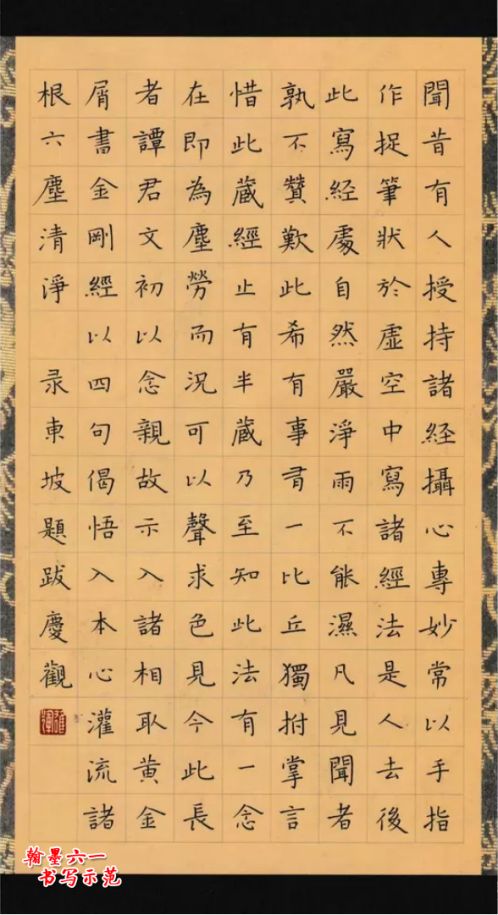 聞昔有人授持諸經攝心專妙常以手指
作捉筆狀於虛空中寫諸經法是人去後
此寫經處自然嚴淨雨不能濕凡見聞者
孰不贊歎此希有事有一比丘獨拊掌言
惜此蔵經止有半蔵乃至知此法有一念
在即為塵勞而況可以聲求色見今此長
者譚君文初以念親故示入諸相取黃金
屑書金剛經以四句偈悟入本心灌流諸
根六塵清淨 录東坡題跋慶觀
翰墨六一
书写示范